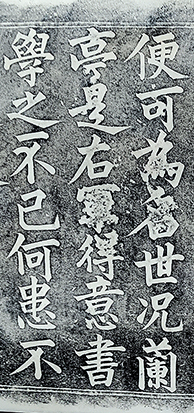 便可為世况蘭
亭是右軍得意書
學之不已何患不